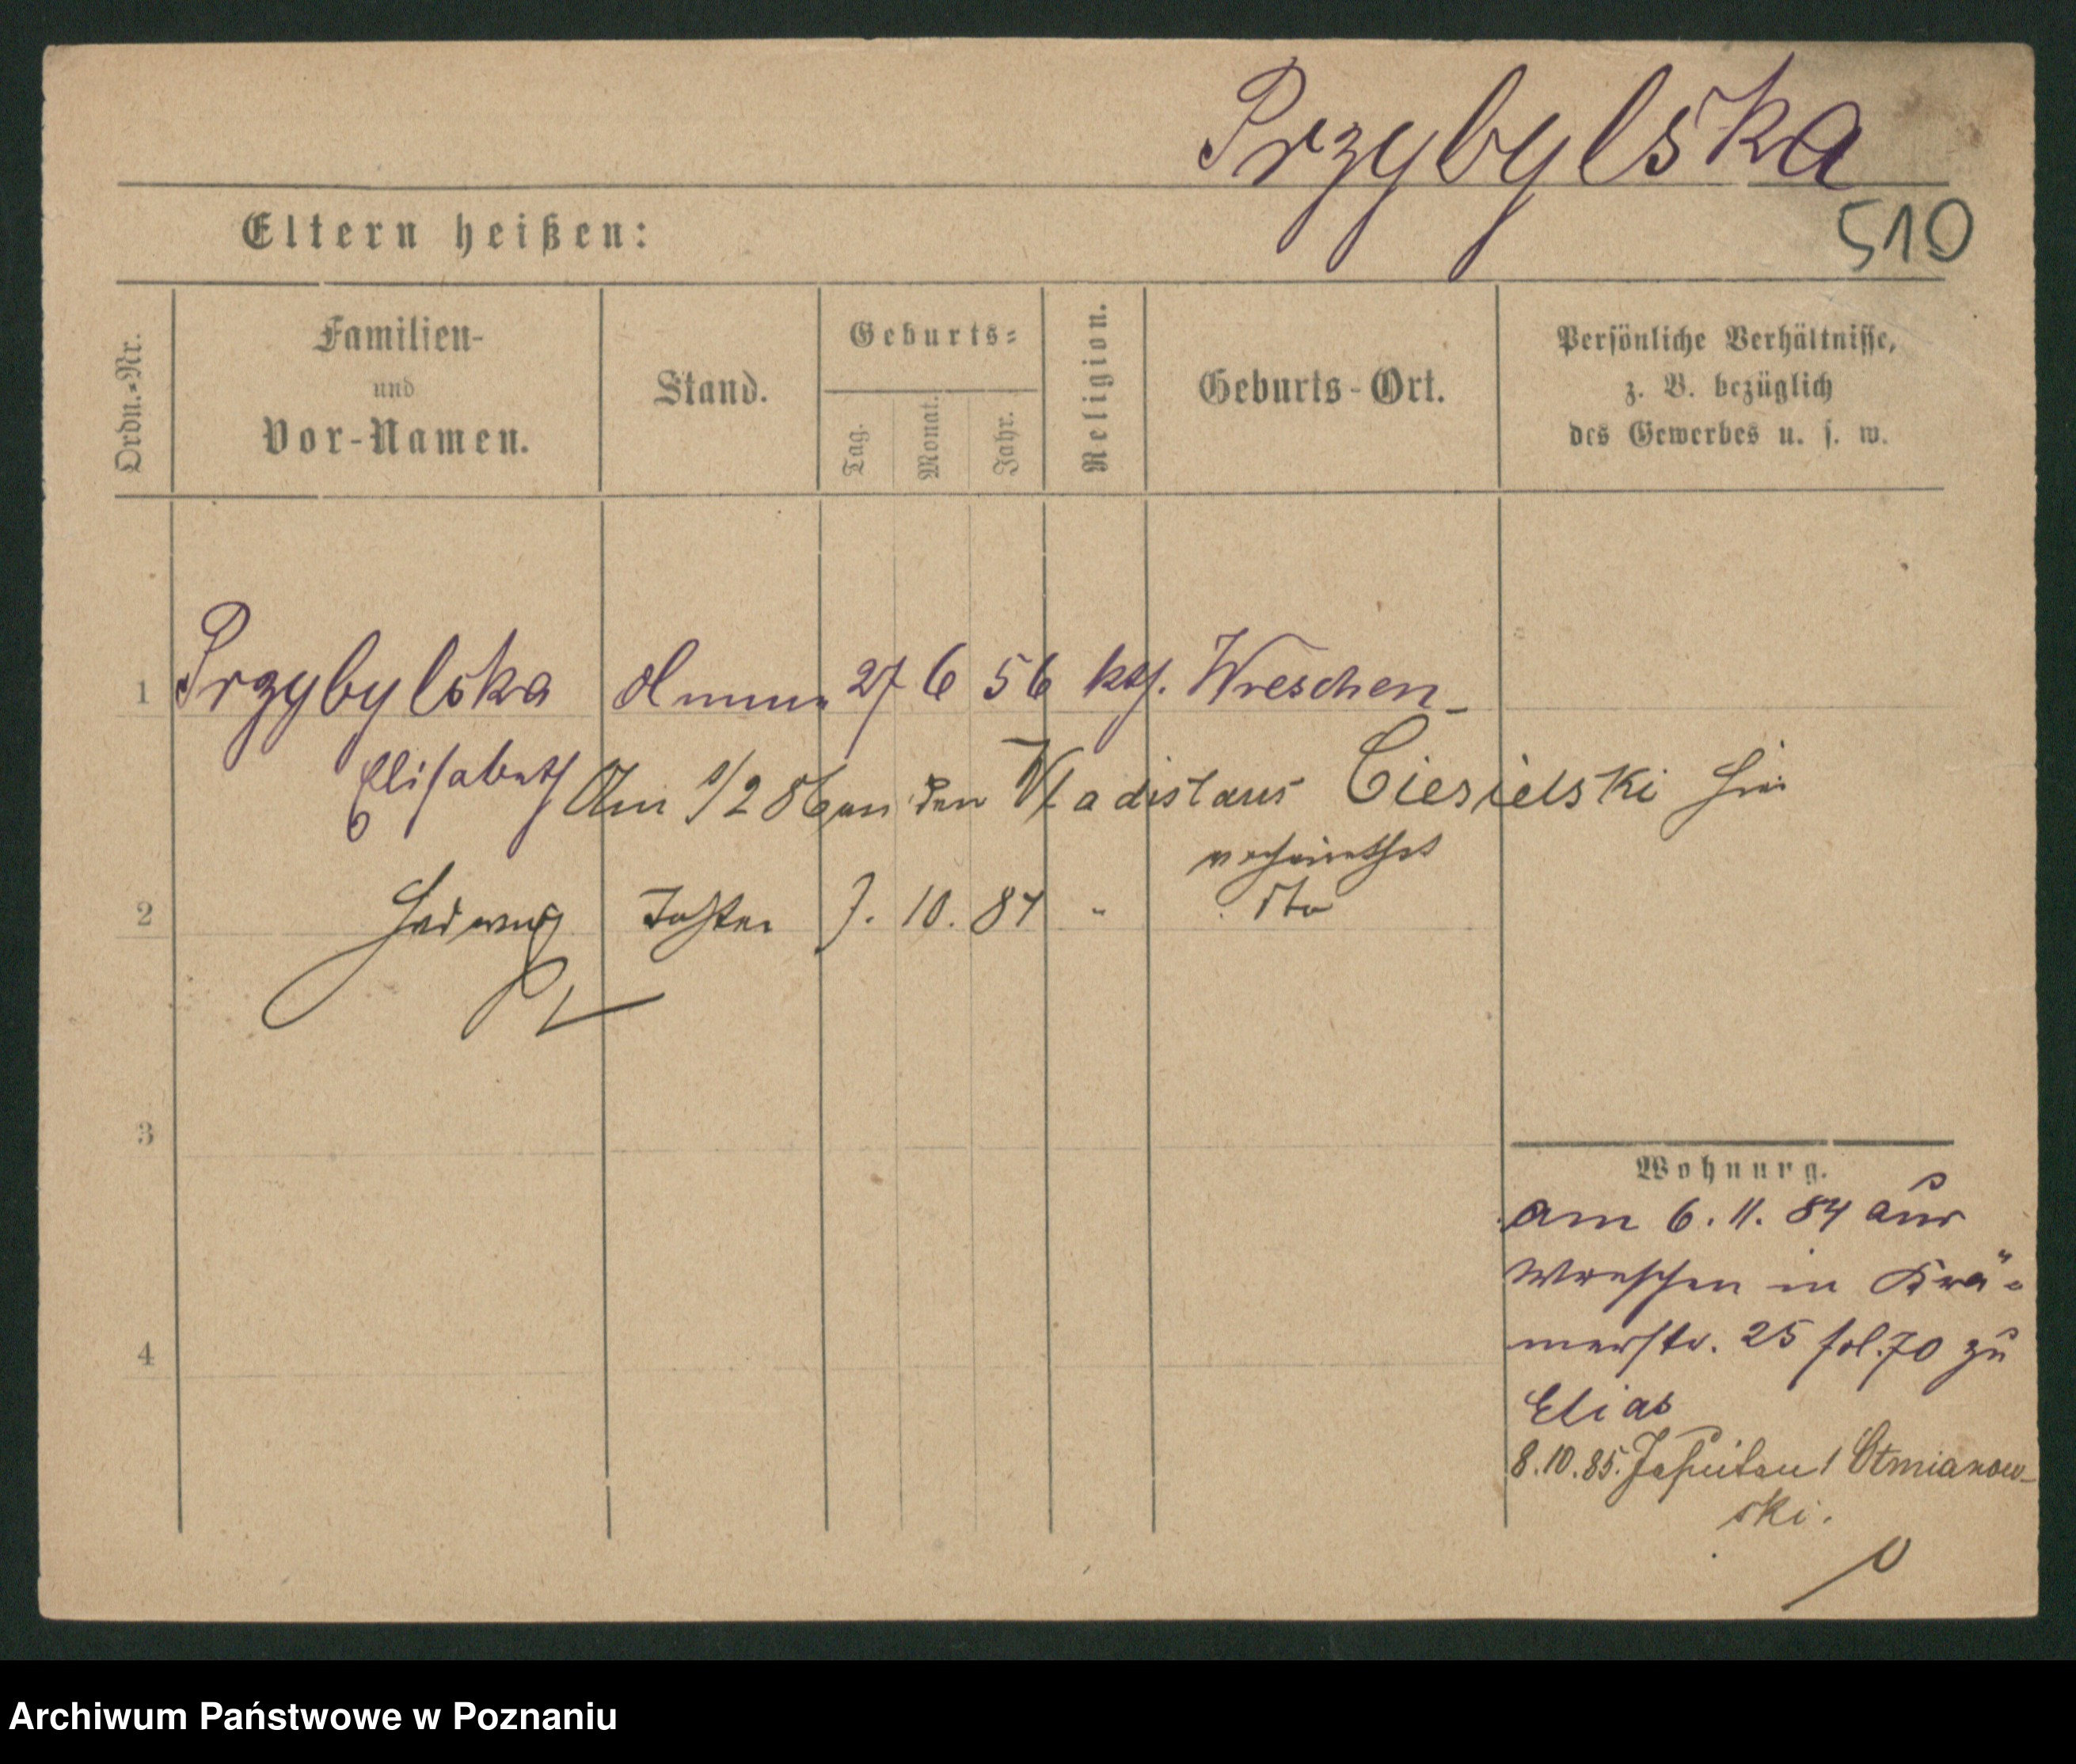 Przybylska
510
Eltern heißen:
Ordn.-Nr.
Familien-
und
Vor-Namen.
Stand.
Geburts-
Tag.
Monat.
Jahr.
Religion.
Geburts-Ort.
Persönliche Verhältnisse,
z. B. bezüglich
des Gewerbes u. s. w.
1 Przybylska Amme 27 6 56 kth. Wreschen
Elisabeth Am 1/2 86 an den Vladislaus Ciesielski hier
verheirathet
2 Hedwig Tochter 7. 10. 84 " dto
3
4
Wohnung.
am 6. 11. 84 aus
Wreschen in Krä-
merstr. 25 fol. 70 zu
Elias
8.10.85. Jesuitenstr 1 Otmianow-
ski.
Archiwum Państwowe w Poznaniu